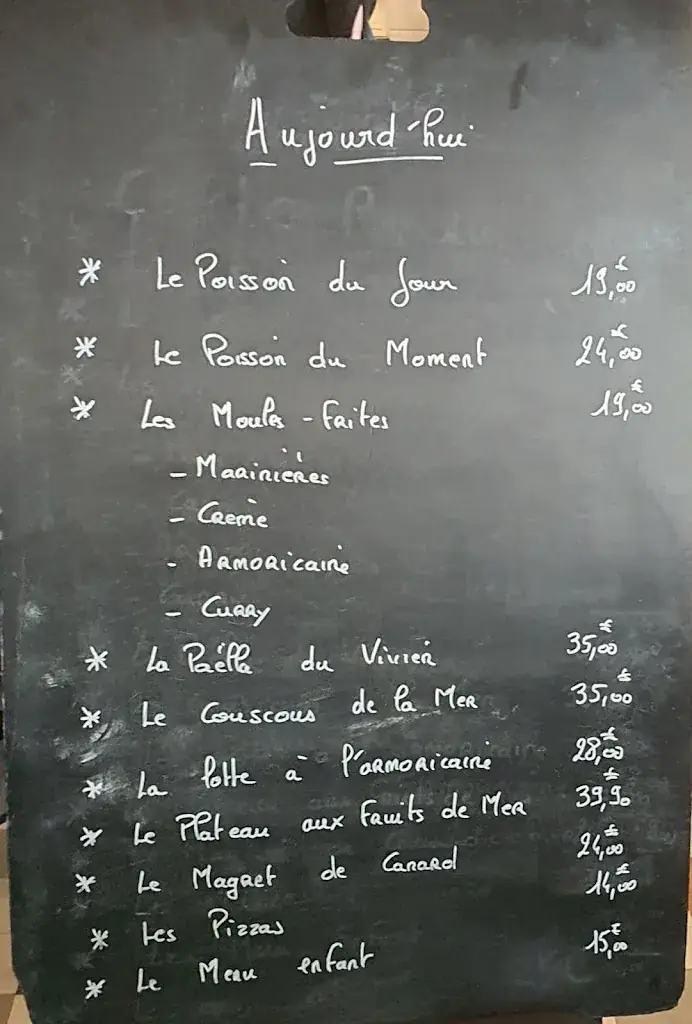 Aujourd'hui
* Le Poisson du Jour 19,00€
* Le Poisson du Moment 24,00€
* Les Moules - Faites 19,00€
- Marinières
- Crème
- Armoricaine
- Curry
* La Paëlla du Vivier 35,00€
* Le Couscous de la Mer 35,00€
* La lotte à l'armoricaine 28,00€
* Le Plateau aux Fruits de Mer 39,90€
* Le Magret de Canard 24,00€
* Les Pizzas 14,00€
* Le Menu enfant 15,00€